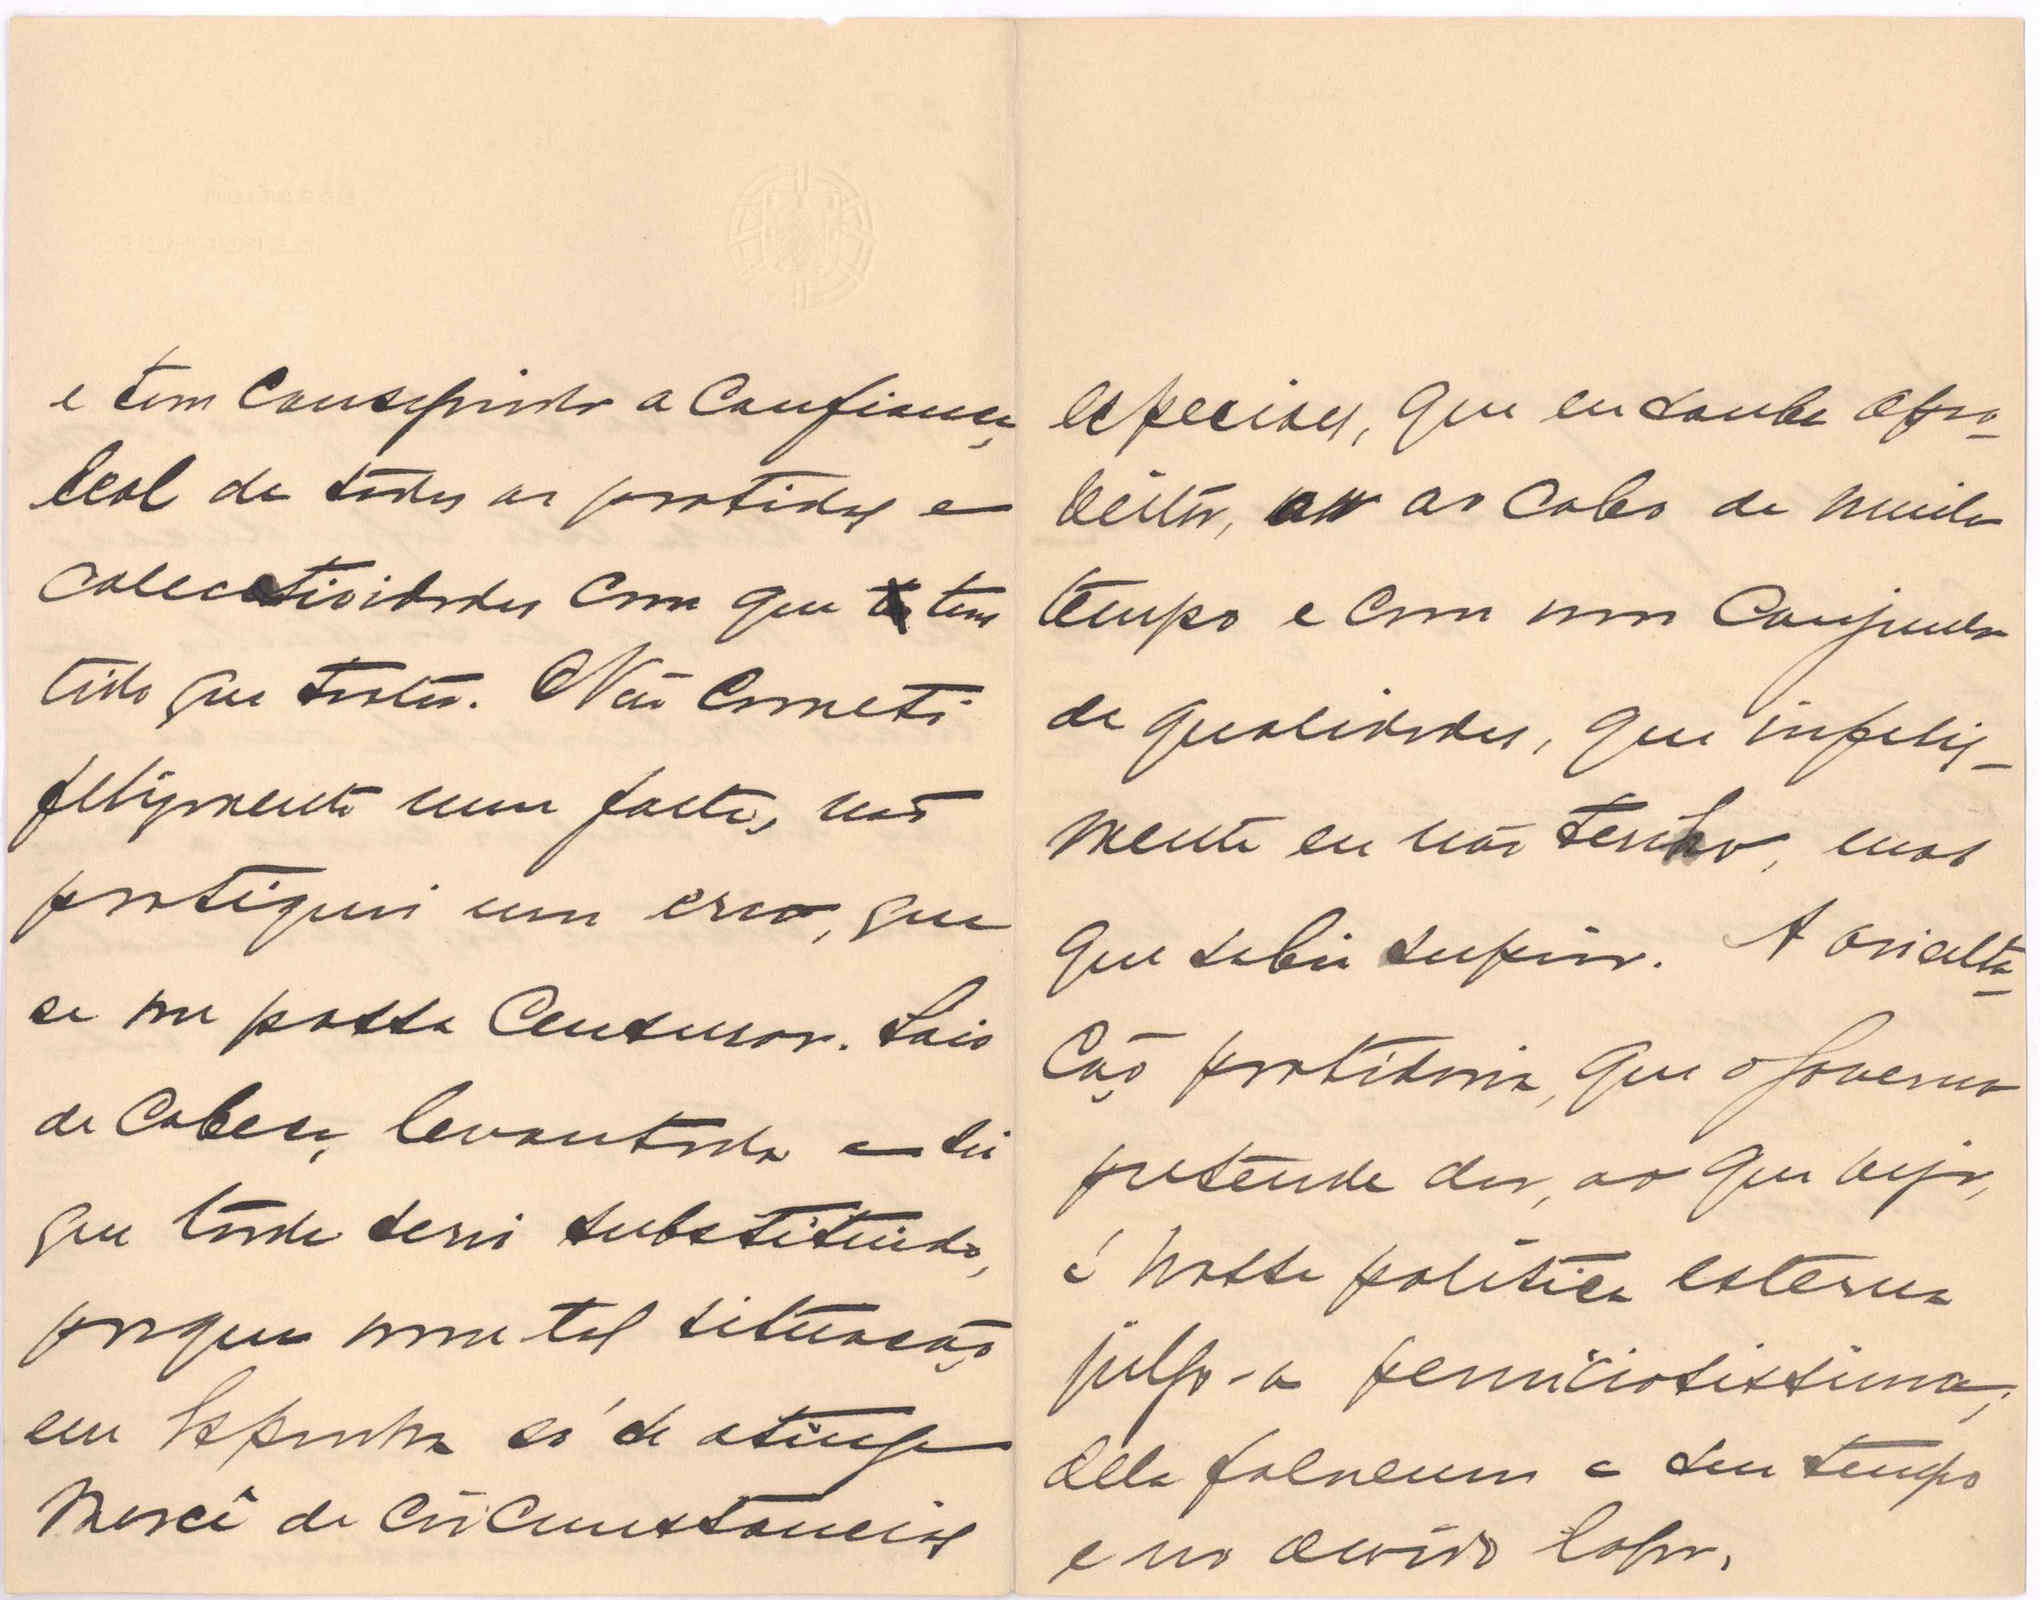 e tem conseguido a confiança
leal de todos os partidos e
colectividades com que tem
tido que tratar. Não cometi
felizmente uma falta, não
pratiquei um erro, que
se me possa censurar. Saio
de cabeça levantada e sei
que tarde serei substituido,
porque numa tal situação
em Espanha só se atinge
mercê de circunstancias
especiaes, que eu soube apro-
veitar, ao cabo de muito
tempo e com um conjunto
de qualidades, que infeliz-
mente eu não tenho, mas
que sabia suprir. A orienta-
ção partidaria, que o Governo
pretende dar, ao que vejo,
á nossa politica externa
julgo-a perniciosissima;
della falaremos a seu tempo
e no devido logar.